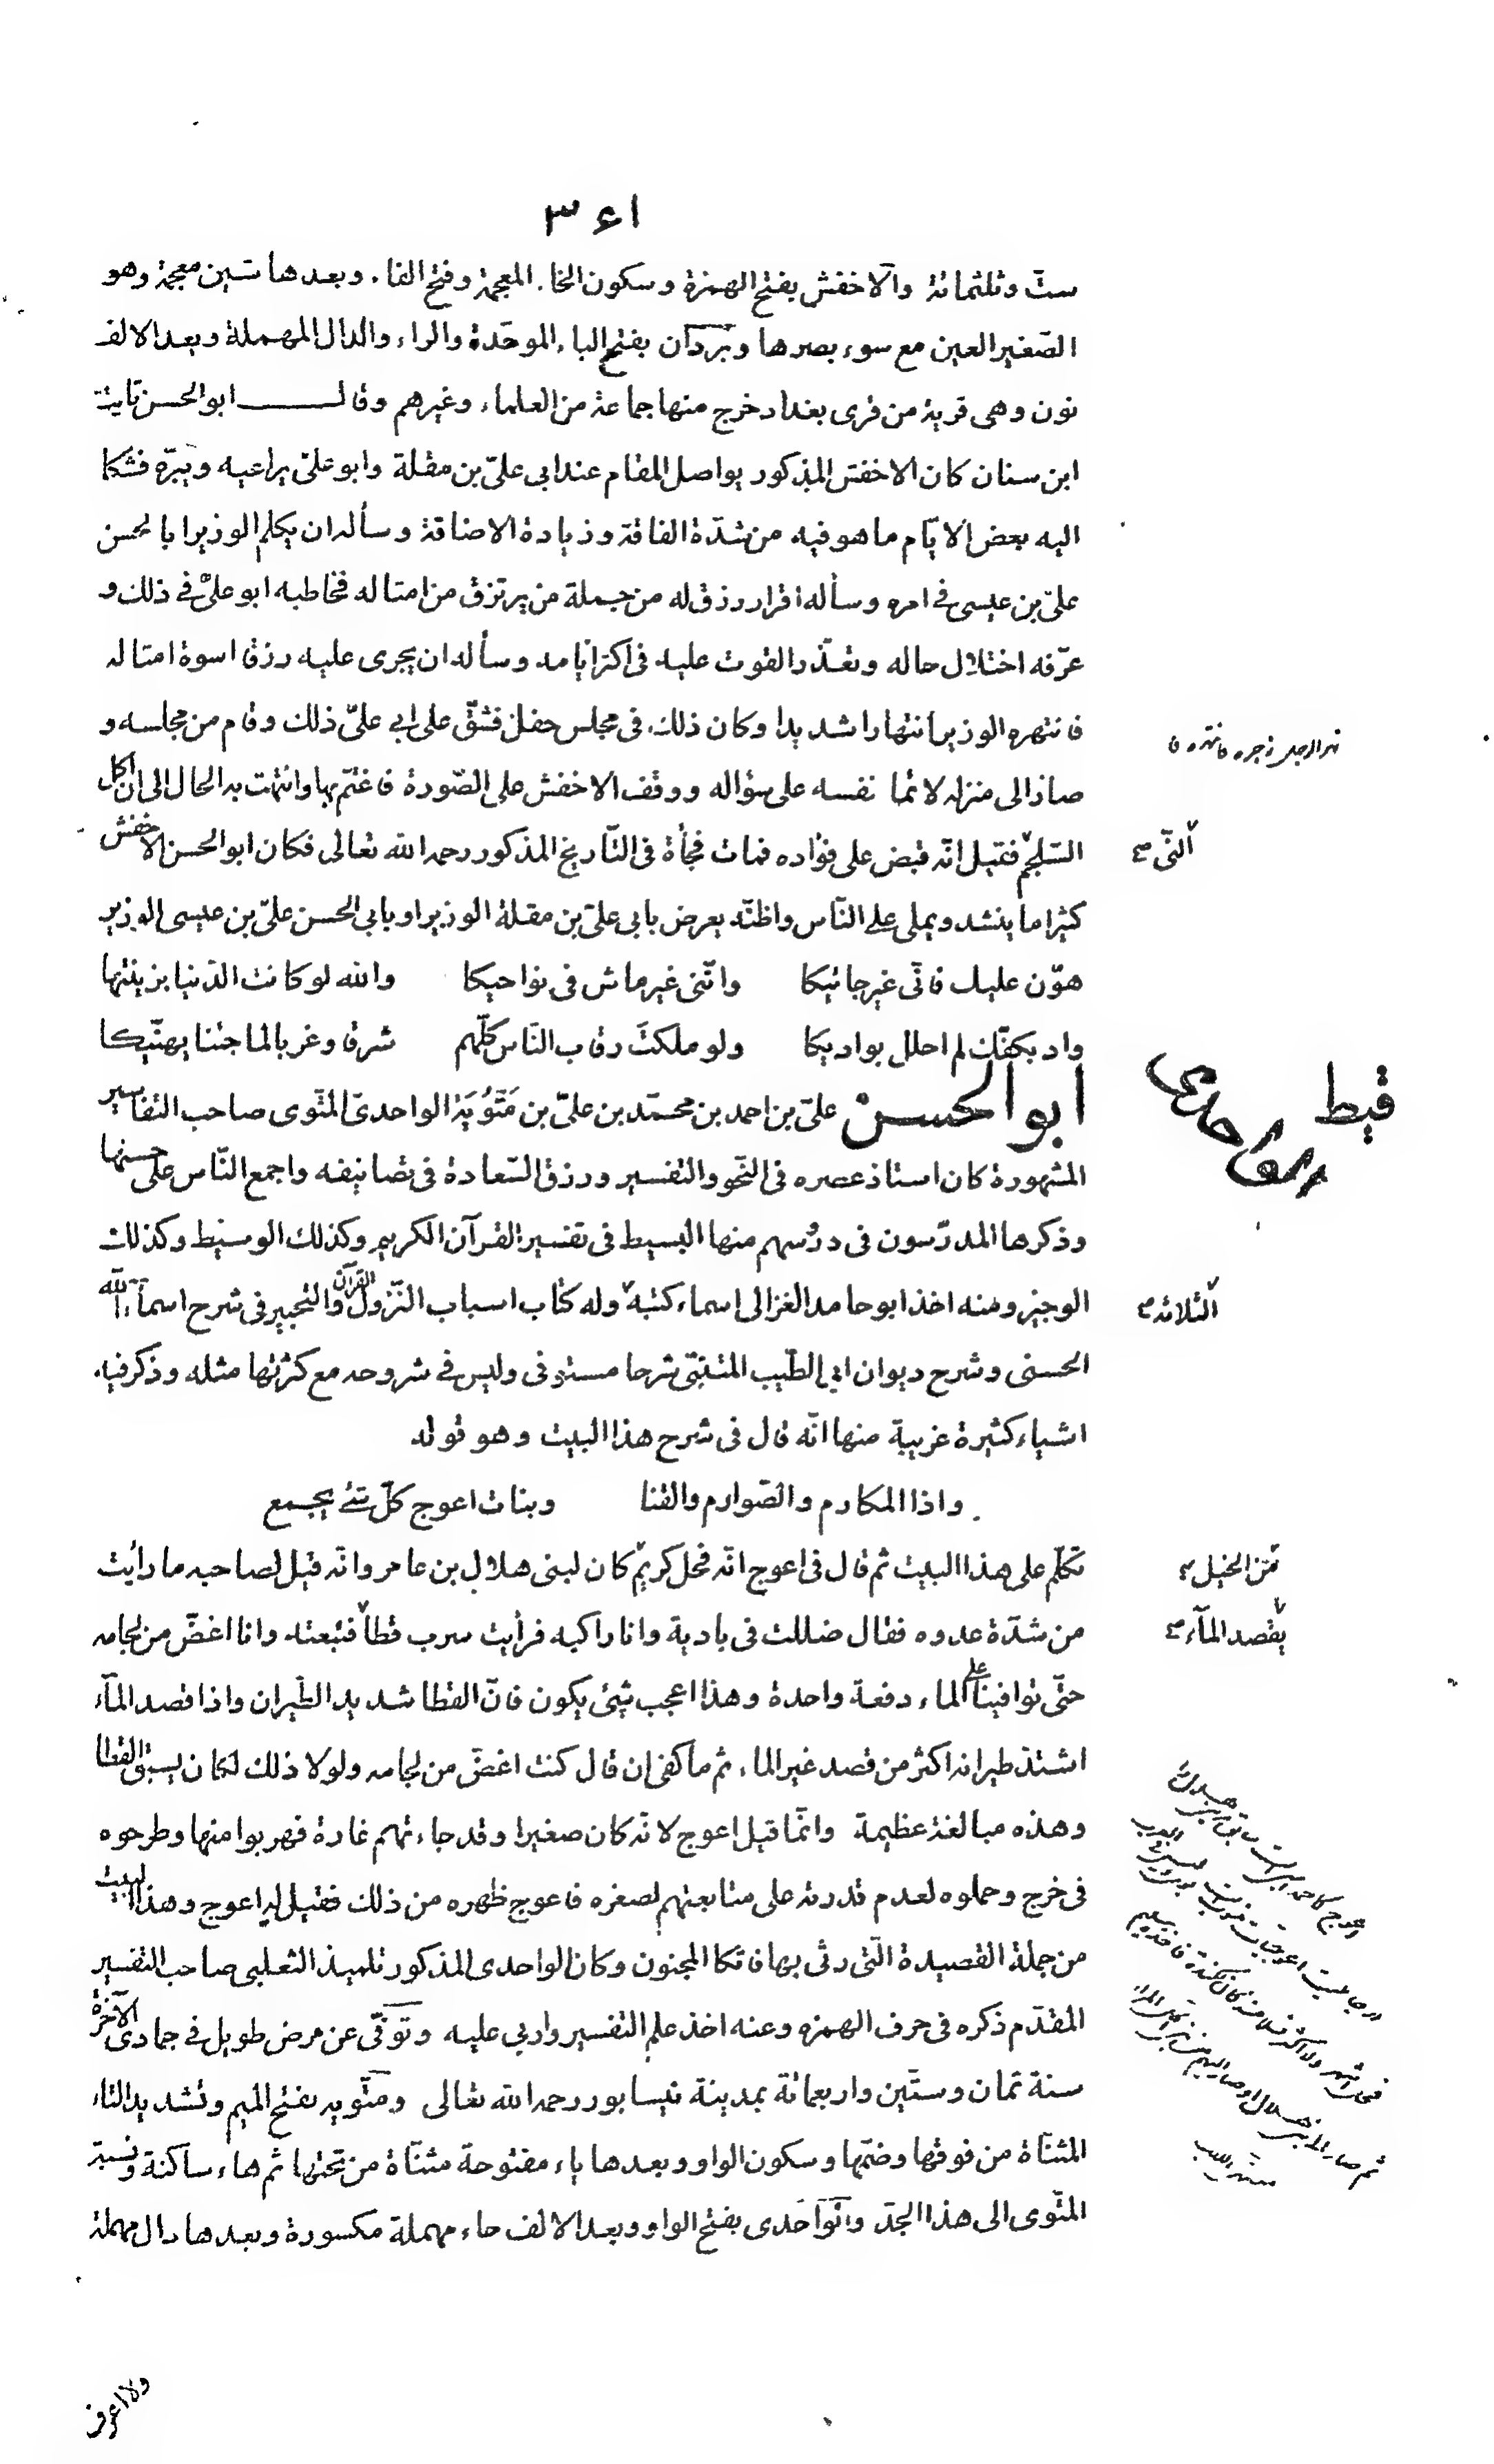 ٣٤١
ستّ وثلثمائة والاخفش بفتح الهمزة وسكون الخاء المعجمة وفتح الفاء وبعدها شين معجمة وهو
الصّغير العين مع سوء بصرها وبَرَدَان بفتح الباء الموحّدة والراء والدال المهملة وبعد الالف
نون وهى قرية من قرى بغداد خرج منها جماعة من العلماء وغيرهم وقال ابو الحسن ثابت
ابن سنان كان الاخفش المذكور يواصل المقام عند ابى علىّ بن مقلة وابو علىّ يراعيه ويبرّه فشكا
اليه بعض الايّام ما هو فيه من شدّة الفاقة وزيادة الاضاقة وسأله ان يكلم الوزير ابا الحسن
علىّ بن عيسى فى امره وسأله اقرار رزق له من جملة من يرتزق من امثاله فخاطبه ابو علىّ فى ذلك و
عرّفه اختلال حاله وتعذّر القوت عليه فى اكثر ايّامه وسأله ان يجرى عليه رزقا اسوة امثاله
فانتهره الوزير انتهارا شديدا وكان ذلك فى مجلس حفل فشقّ على ابى علىّ ذلك وقام من مجلسه و
نهر الرجل زجره فانتهره ق
صار الى منزله لائما نفسه على سؤاله ووقف الاخفش على الصّورة فاغتمّ بها وانتهت به الحال الى ان اكل
السّلجم فقيل انّه قبض على فؤاده فمات فجأة فى التّاريخ المذكور رحمه الله تعالى فكان ابو الحسن الاخفش
النّى صح
كثيرا ما ينشد ويملى على النّاس واظنّه يعرض بابى علىّ بن مقلة الوزير او بابى الحسن علىّ بن عيسى الوزير
هوّن عليك فانّى غير جائيكا وانّنى غير ماش فى نواحيكا والله لو كانت الدّنيا بزينتها
واد بكفّك لم احلل بواديكا ولو ملكتَ رقاب النّاس كلّهم شرقا وغربا لما جئنا يهنّيكا
ابو الحسن علىّ بن احمد بن محمّد بن علىّ بن مَتُّويَة الواحدىّ المتّوى صاحب التفاسير
قيط
الواحدى
المشهورة كان استاذ عصره فى النّحو والتفسير ورزق السّعادة فى تصانيفه واجمع النّاس على حسنها
وذكرها المدرّسون فى درُسهم منها البسيط فى تفسير القرآن الكريم وكذلك الوسيط وكذلك
الوجيز ومنه اخذ ابو حامد الغزالى اسماء كتبه وله كتاب اسباب النّزول القرآن والتّحبير فى شرح اسماء الله
الثلاثة صح
الحسنى وشرح ديوان ابى الطّيب المتنبّى شرحا مستوفى وليس فى شروحه مع كثرتها مثله وذكر فيه
اشياء كثيرة غريبة منها انّه قال فى شرح هذا البيت وهو قوله
واذا المكارم والصّوارم والقنا وبنات اعوج كلّ شئ يجمع
تكلّم على هذا البيت ثم قال فى اعوج انّه فحل كريم كان لبنى هلال بن عامر وانّه قيل لصاحبه ما رأيت
من شدّة عدوه فقال ضللت فى بادية وانا راكبه فرأيت سرب قطا فتبعته وانا اغضّ من لجامه
يقصد المآء صح
حتّى توافينا على الماء دفعة واحدة وهذا اعجب شئ يكون فانّ القطا شديد الطّيران واذا قصد المآء
اشتدّ طيرانه اكثر من قصد غير الماء ثم ما كفى ان قال كنت اغضّ من لجامه ولولا ذلك لكان يسبق القطا
وهذه مبالغة عظيمة وانّما قيل اعوج لانّه كان صغيرا وقد جاءتهم غارة فهربوا منها وطرحوه
فى خرج وحملوه لعدم قدرته على متابعتهم لصغره فاعوج ظهره من ذلك فقيل له اعوج وهذا البيت
من جملة القصيدة الّتى رثى بها فاتكا المجنون وكان الواحدى المذكور تلميذ الثعلبى صاحب التفسير
المقدّم ذكره فى حرف الهمزه وعنه اخذ علم التفسير واربى عليه وتوفّى عن مرض طويل فى جمادى الآخرة
سنة ثمان وستّين واربعمائة بمدينة نيسابور رحمه الله تعالى ومتّويه بفتح الميم وتشديد التاء
المثنّاة من فوقها وضمّها وسكون الواو وبعدها ياء مفتوحة مثنّاة من تحتها ثم هاء ساكنة ونسبة
المتّوى الى هذا الجدّ والوَاحَدى بفتح الواو وبعد الالف حاء مهملة مكسورة وبعدها دال مهملة
ولا اعرف